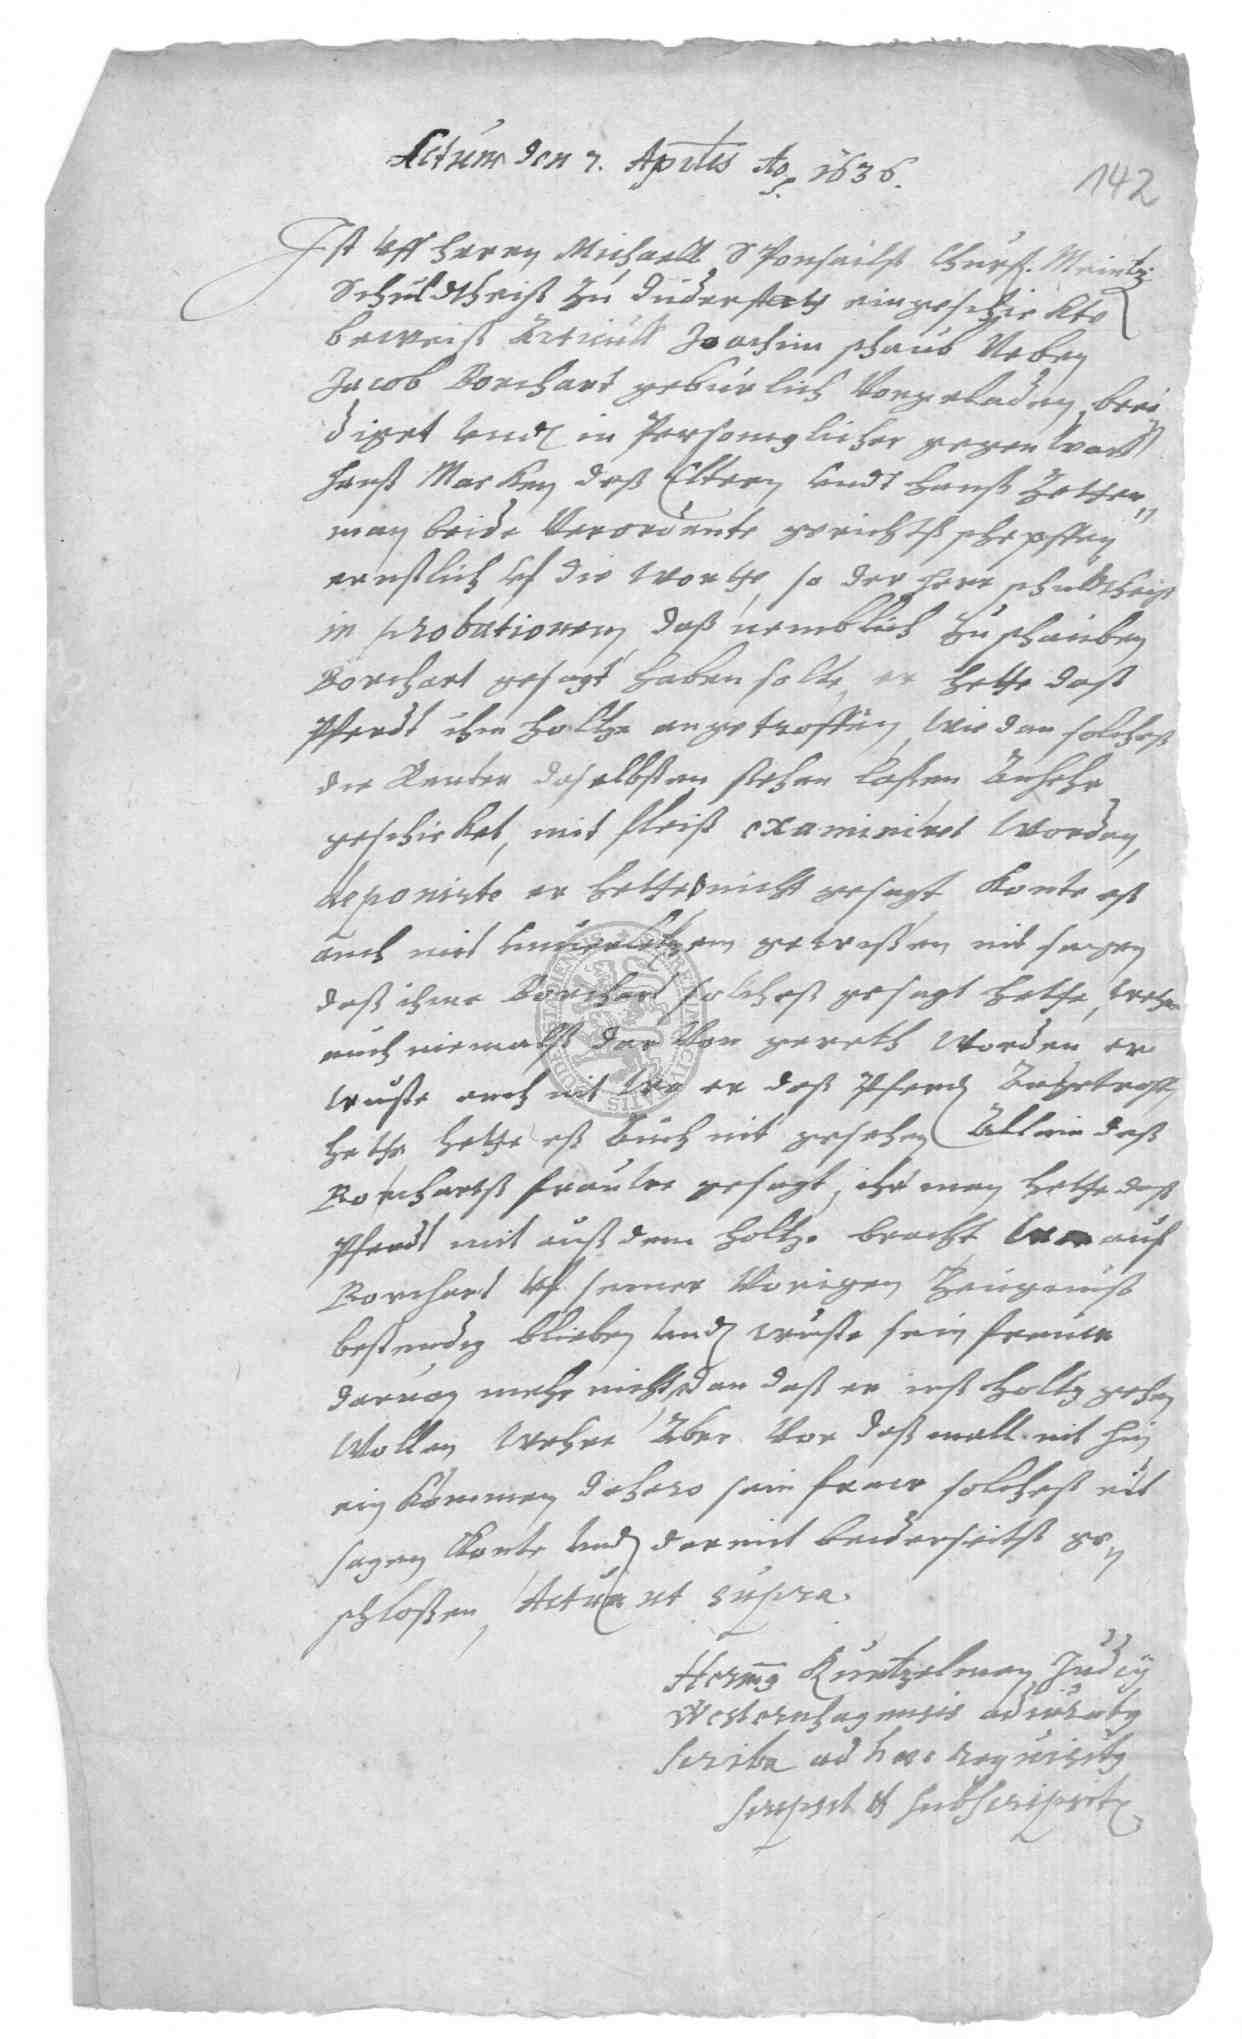 Actum den 7. Aprilis Ao 1636.
142
Ist uff Herrn Michaell Churf. Meintz
Schuldtheiß zu Duderstatt eingeschickte
beweiß Articull Joachim Schaub Neben
Jacob Borchart gebürlich Vorgeladen, beei
diget undt in Personeglicher gegenwart
Hanß Marken deß Eltern undt Hanß Zetter„
man beide Verordente gerichtß schepffen
ernstlich uf die worthe, so der Herr schuldtheiß
in probationem, daß nemblich zu schauben
Borchart gesagt haben solte, er hette daß
Pferdt ihm holtze angetroffen, wie dan solcheß
die Reuter daselbsten stehen laßen
geschicket, mit fleiß examiniret worden,
deponirte er hette nicht gesagt Konte eß
auch mit unverletztem gewißen nit sagen
daß ihme Borchart solcheß gesagt hette, wehre
auch niemalß dar Von gereth worden er
wuste auch nit wo er daß Pferd angetroff
hette hette eß auch nit gesehen Allein daß
Borchartß frauwe gesagt, ihr man hette daß
Pferdt mit auß dem holtze bracht, worauf
Borchart uf seiner Vorigen Zeugnuß
bestendig blieben undt wuste sein frauwe
darvon mehr nicht, dan daß er inß holtz gehen
wollen wehre Aber Vor daßmall nit hin
ein kommen dahero sein frauw solcheß nit
sagen Konte undt darmit beiderseitß ge„
schloßen, Actum ut supra.
Herm̄g Kuntzelman Judicy
Westernhagensis adiuratg
scriba ad hoc requisitg
scripsit et subscripsit